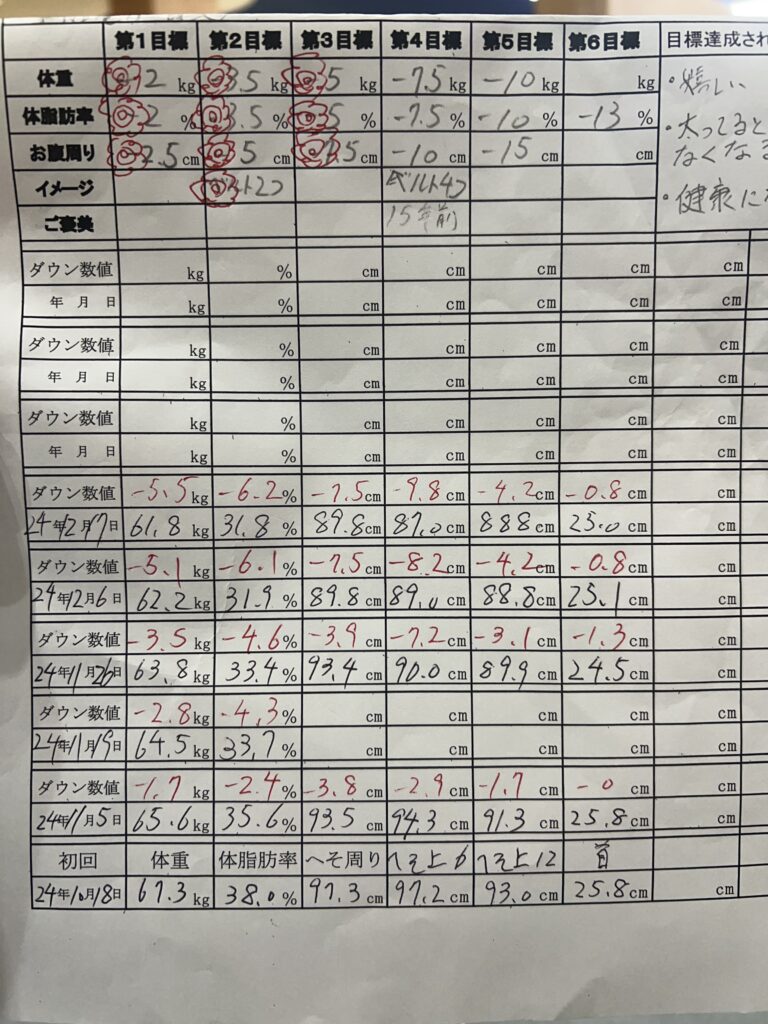 第1目標 第2目標 第3目標 第4目標 第5目標 第6目標 目標達成され
体重 -2 kg -3.5 kg -5 kg -7.5 kg -10 kg kg ・嬉しい
体脂肪率 -2 % -3.5 % -5 % -7.5 % -10 % -13 % ・太ってると
なくなる
お腹周り -2.5 cm -5 cm -7.5 cm -10 cm -15 cm cm
イメージ ベルト2つ ベルト4つ ・健康に
ご褒美 15年前
ダウン数値 kg % cm cm cm cm cm
年 月 日 kg % cm cm cm cm cm
ダウン数値 kg % cm cm cm cm cm
年 月 日 kg % cm cm cm cm cm
ダウン数値 kg % cm cm cm cm cm
年 月 日 kg % cm cm cm cm cm
ダウン数値 -5.5 kg -6.2 % -7.5 cm -9.8 cm -4.2 cm -0.8 cm cm
24年12月17日 61.8 kg 31.8 % 89.8 cm 87.0 cm 88.8 cm 25.0 cm cm
ダウン数値 -5.1 kg -6.1 % -7.5 cm -8.2 cm -4.2 cm -0.8 cm cm
24年12月6日 62.2 kg 31.9 % 89.8 cm 89.0 cm 88.8 cm 25.1 cm cm
ダウン数値 -3.5 kg -4.6 % -3.9 cm -7.2 cm -3.1 cm -1.3 cm cm
24年11月26日 63.8 kg 33.4 % 93.4 cm 90.0 cm 89.9 cm 24.5 cm cm
ダウン数値 -2.8 kg -4.3 % cm cm cm cm cm
24年11月19日 64.5 kg 33.7 % cm cm cm cm cm
ダウン数値 -1.7 kg -2.4 % -3.8 cm -2.9 cm -1.7 cm -0 cm cm
24年11月5日 65.6 kg 35.6 % 93.5 cm 94.3 cm 91.3 cm 25.8 cm cm
初回 体重 体脂肪率 へそ周り へそ上6 へそ上12 首
24年10月18日 67.3 kg 38.0 % 97.3 cm 97.2 cm 93.0 cm 25.8 cm cm